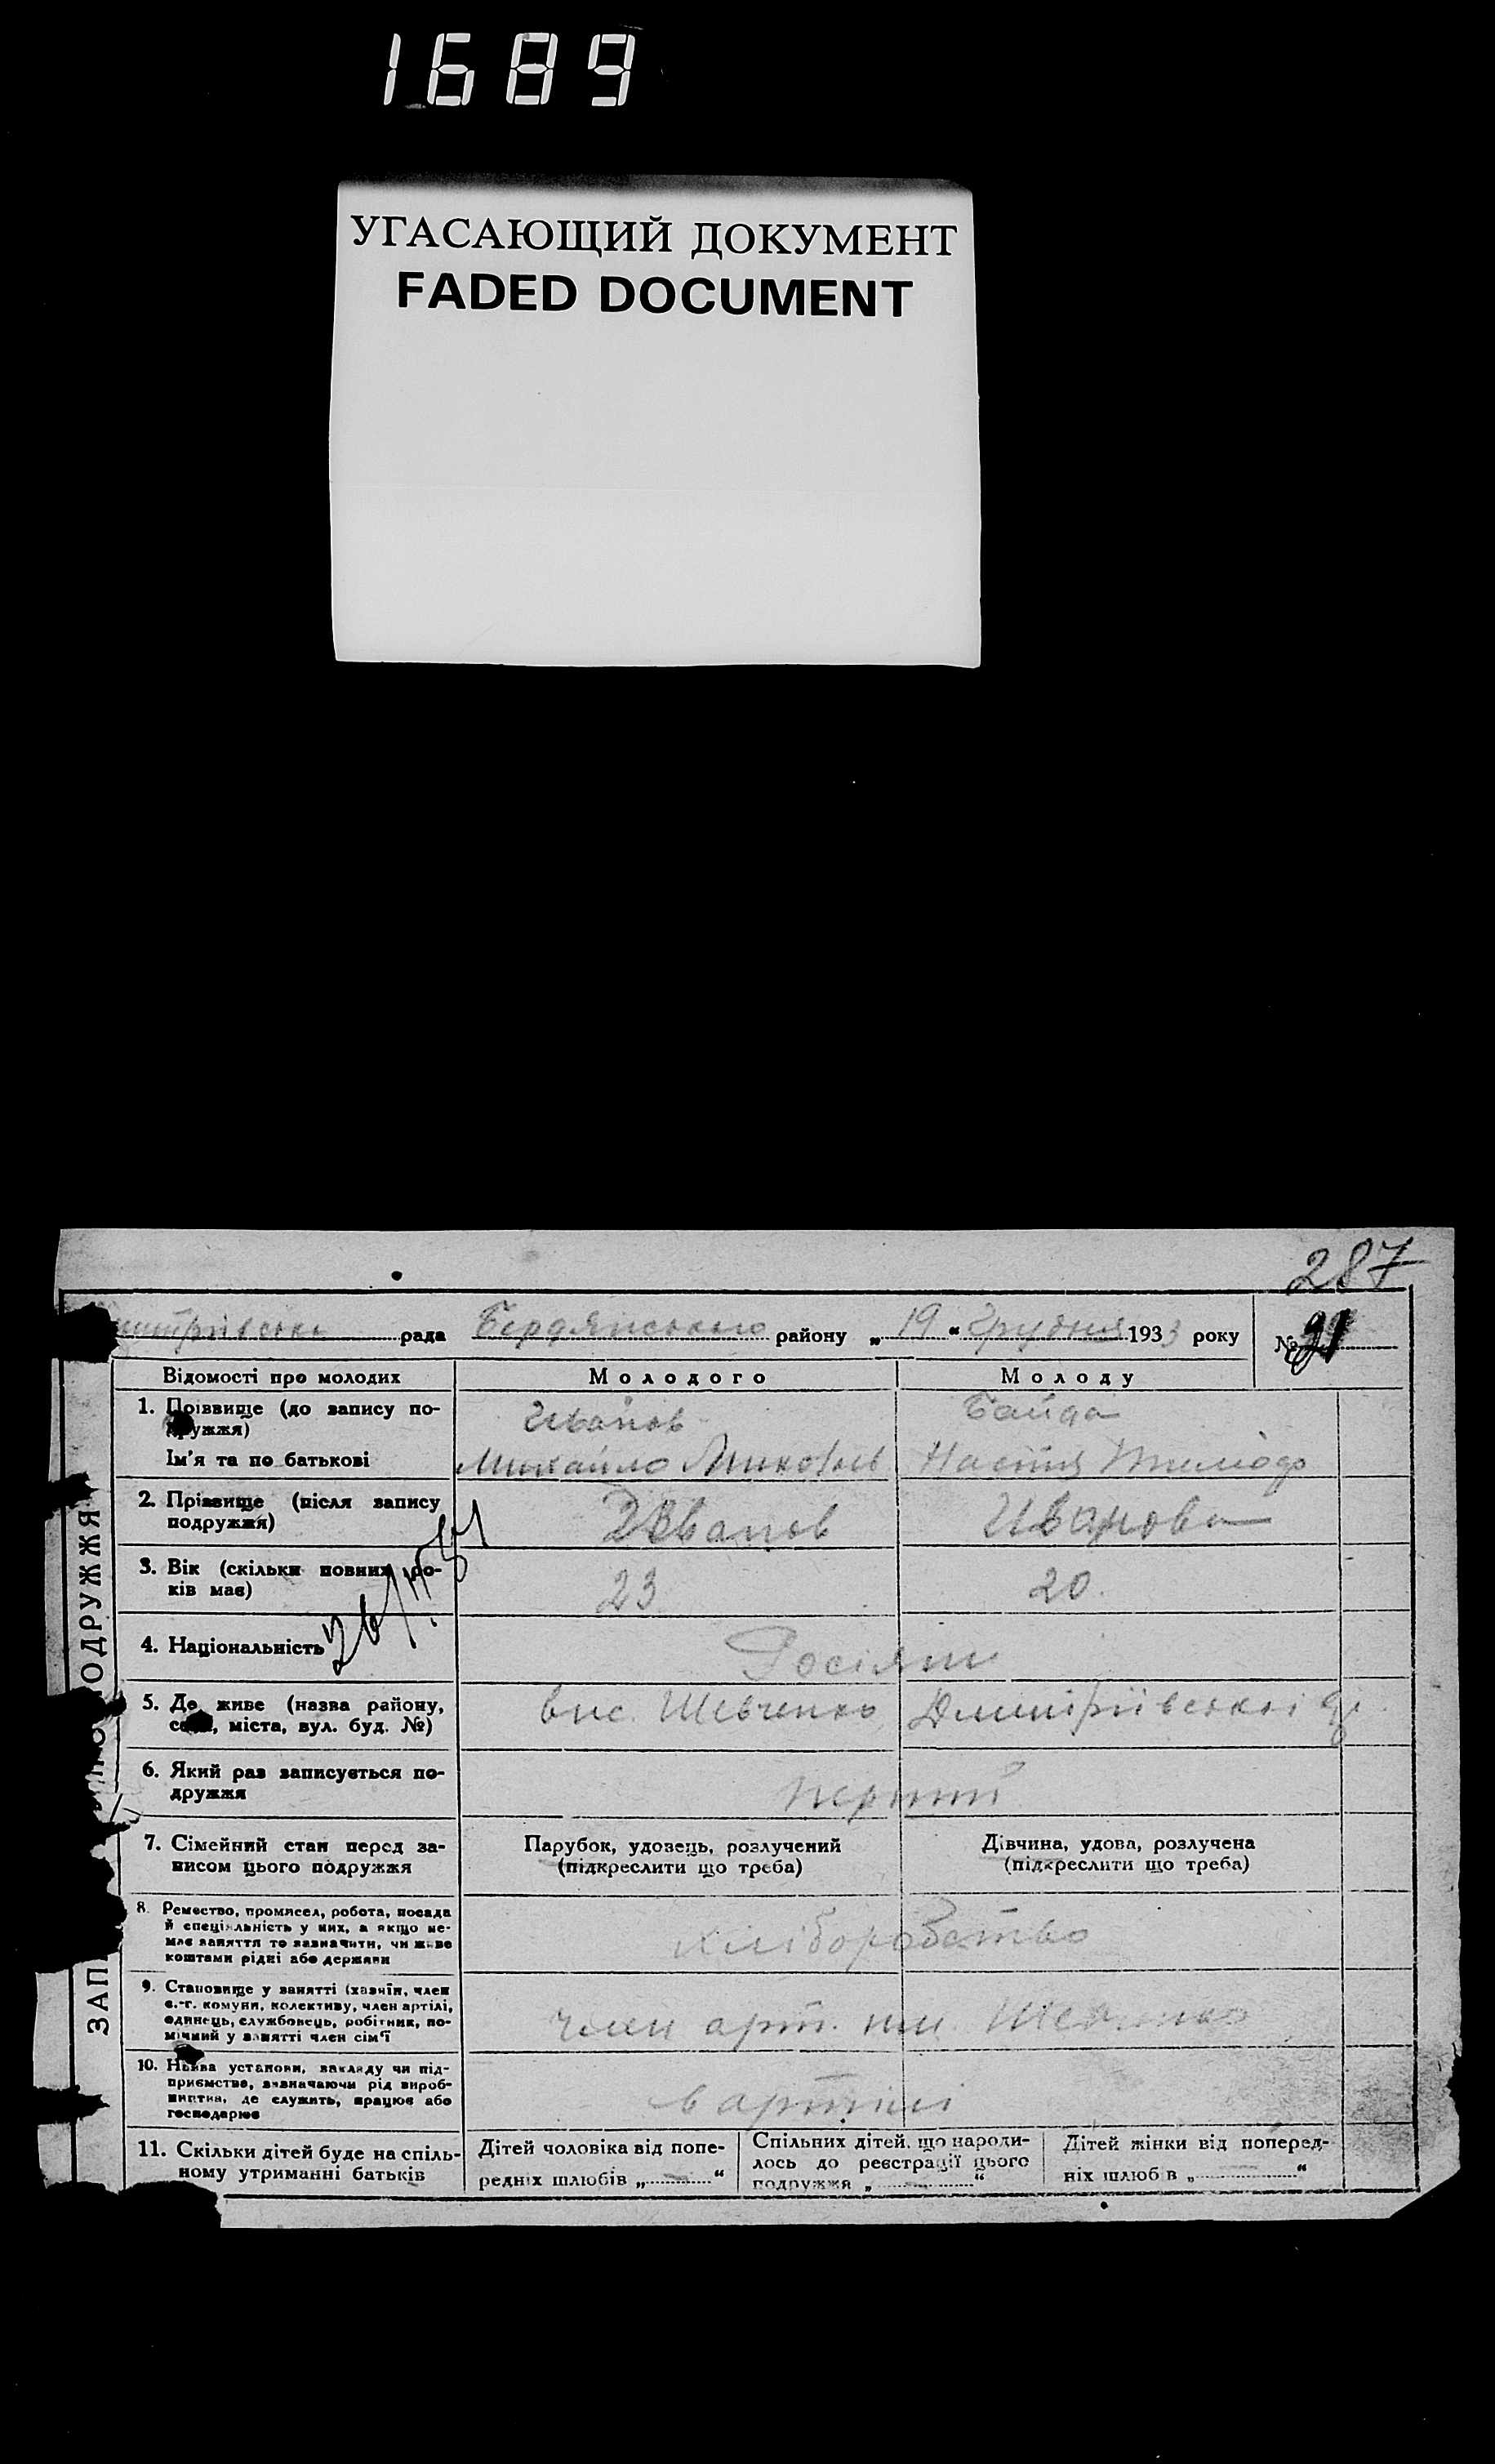 1689
УГАСАЮЩИЙ ДОКУМЕНТ
FADED DOCUMENT
287
рада Бердянського району „ 19 “ Грудня 1933 року №
Відомості про молодих
Молодого
Молоду
1. Прізвище (до запису по-
дружжя)
Ім'я та по батькові
Иванов
Михайло
Байда
Настя
2. Прізвище (після запису
подружжя)
Иванов
Иванова
3. Вік (скільки повних ро-
ків має)
23
20.
4. Національність
Росіяни
5. Де живе (назва району,
села, міста, вул. буд. №)
в ис. Шевченко
Дмитріївської
6. Який раз записується по-
дружжя
перший
7. Сімейний стан перед за-
писом цього подружжя
Парубок, удовець, розлучений
(підкреслити що треба)
Дівчина, удова, розлучена
(підкреслити що треба)
8. Ремество, промисел, робота, посада
й спеціяльність у них, а якщо не-
має заняття то зазначити, чи живе
коштами рідні або держави
хліборобство
9. Становище у занятті (хазяїн, член
с.-г. комуни, колективу, член артілі,
одинець, службовець, робітник, по-
мічний у занятті член сім'ї
член арт. им. Шевченко
10. Назва установи, закладу чи під-
приємства, зазначаючи рід вироб-
ництва, де служить, працює або
господарює
в артілі
11. Скільки дітей буде на спіль-
ному утриманні батьків
Дітей чоловіка від попе-
редніх шлюбів „ “
Спільних дітей, що народи-
лось до реєстрації цього
подружжя „ “
Дітей жінки від поперед-
ніх шлюбів „ “